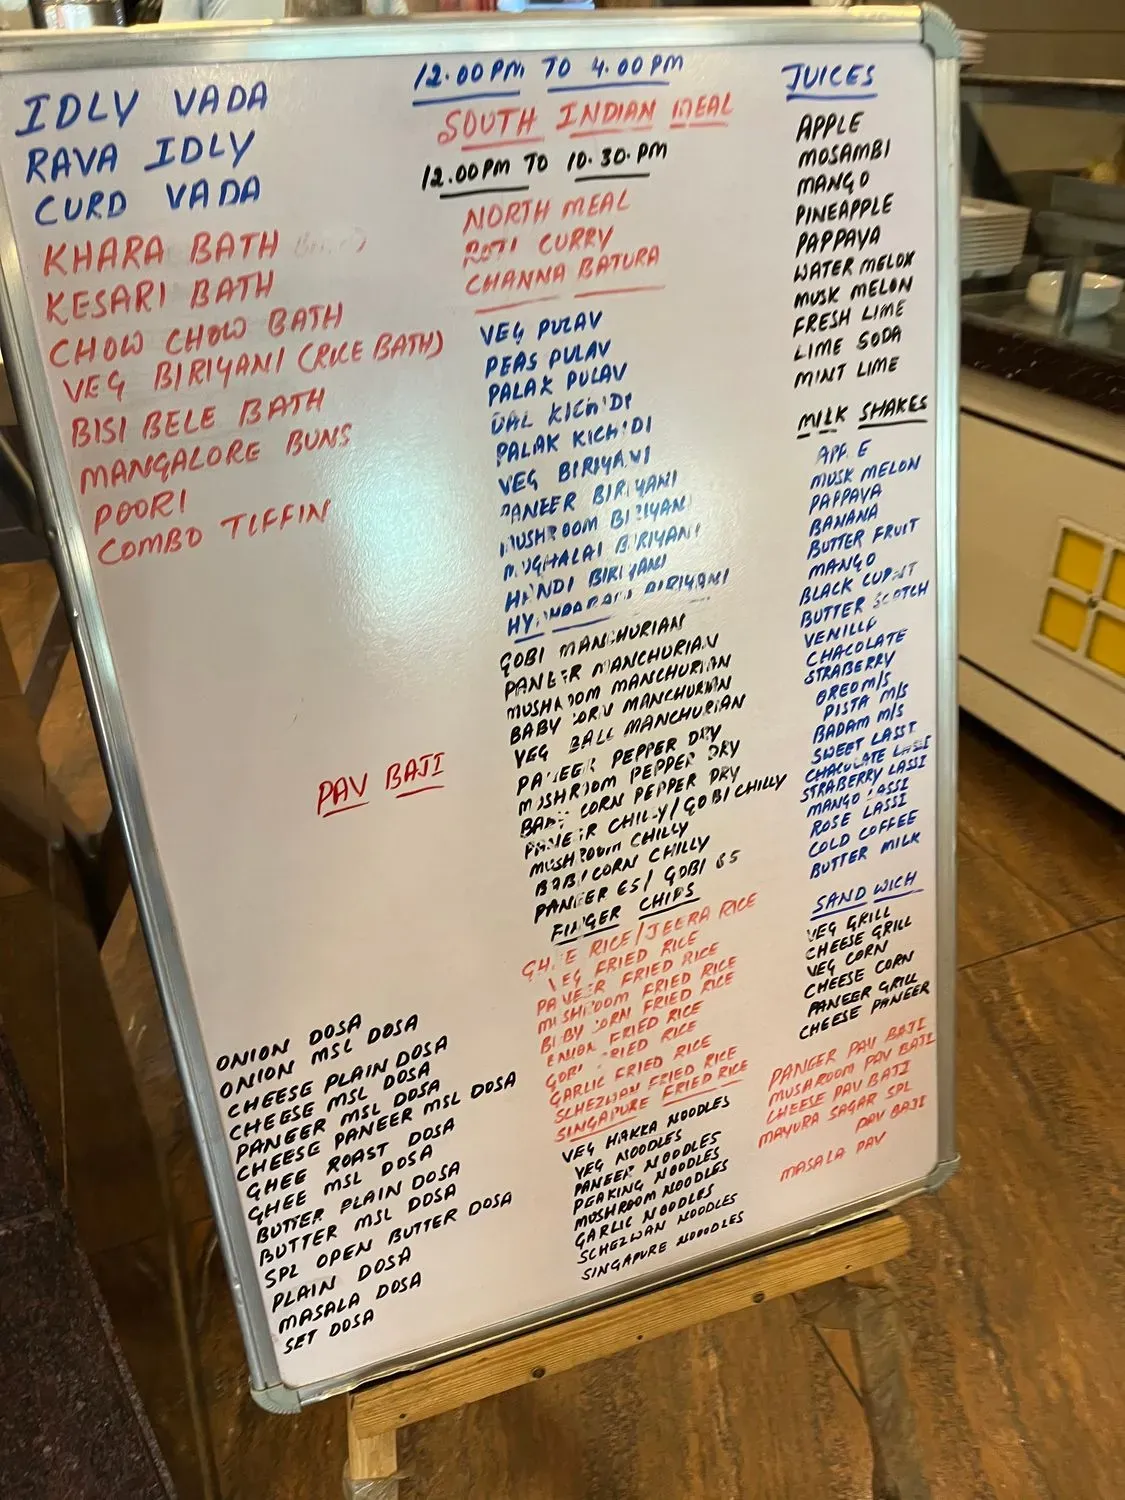 IDLY VADA
RAVA IDLY
CURD VADA
KHARA BATH
KESARI BATH
CHOW CHOW BATH
VEG BIRIYANI (RICE BATH)
BISI BELE BATH
MANGALORE BUNS
POORI
COMBO TIFFIN
PAV BAJI
ONION DOSA
ONION MSL DOSA
CHEESE PLAIN DOSA
CHEESE MSL DOSA
PANEER MSL DOSA
CHEESE PANEER MSL DOSA
GHEE ROAST DOSA
GHEE MSL DOSA
BUTTER PLAIN DOSA
BUTTER MSL DOSA
SPL OPEN BUTTER DOSA
PLAIN DOSA
MASALA DOSA
SET DOSA
12.00PM TO 4.00PM
SOUTH INDIAN MEAL
12.00PM TO 10.30.PM
NORTH MEAL
ROTI CURRY
CHANNA BATURA
VEG PULAV
PEAS PULAV
PALAK PULAV
DAL KICHIDI
PALAK KICHIDI
VEG BIRIYANI
PANEER BIRIYANI
MUSHROOM BIRIYANI
MUGHALAI BIRIYANI
HANDI BIRIYANI
HYNDARABI BIRIYANI
GOBI MANCHURIAN
PANEER MANCHURIAN
MUSHROOM MANCHURIAN
BABY CORN MANCHURIAN
VEG BALL MANCHURIAN
PANEER PEPPER DRY
MUSHROOM PEPPER DRY
BABY CORN PEPPER DRY
PANEER CHILLY/GOBI CHILLY
MUSHROOM CHILLY
BABICORN CHILLY
PANEER 65/ GOBI 65
FINGER CHIPS
GHEE RICE/JEERA RICE
VEG FRIED RICE
PANEER FRIED RICE
MUSHROOM FRIED RICE
BEBY CORN FRIED RICE
ENION FRIED RICE
GOBI FRIED RICE
GARLIC FRIED RICE
SCHEZWAN FRIED RICE
SINGAPURE FRIED RICE
VEG HAKKA NOODLES
VEG NOODLES
PANEER NOODLES
PEAKING NOODLES
MUSHROOM NOODLES
GARLIC NOODLES
SCHEZWAN NOODLES
SINGAPURE NOOODLES
JUICES
APPLE
MOSAMBI
MANGO
PINEAPPLE
PAPPAYA
WATER MELON
MUSK MELON
FRESH LIME
LIME SODA
MINT LIME
MILK SHAKES
APPLE
MUSK MELON
PAPPAYA
BANANA
BUTTER FRUIT
MANGO
BLACK
BUTTER SCOTCH
VENILLA
CHACOLATE
STRABERRY
OREO M/S
PISTA M/S
BADAM M/S
SWEET LASSI
CHACOLATE LASSI
STRABERRY LASSI
MANGO LASSI
ROSE LASSI
COLD COFFEE
BUTTER MILK
SAND WICH
VEG GRILL
CHEESE GRILL
VEG CORN
CHEESE CORN
PANEER GRILL
CHEESE PANEER
PANEER PAV BAJI
MUSAROOM PAV BAJI
CHEESE PAV BAJI
MAYURA SAGAR SPL
PAV BAJI
MASALA PAV